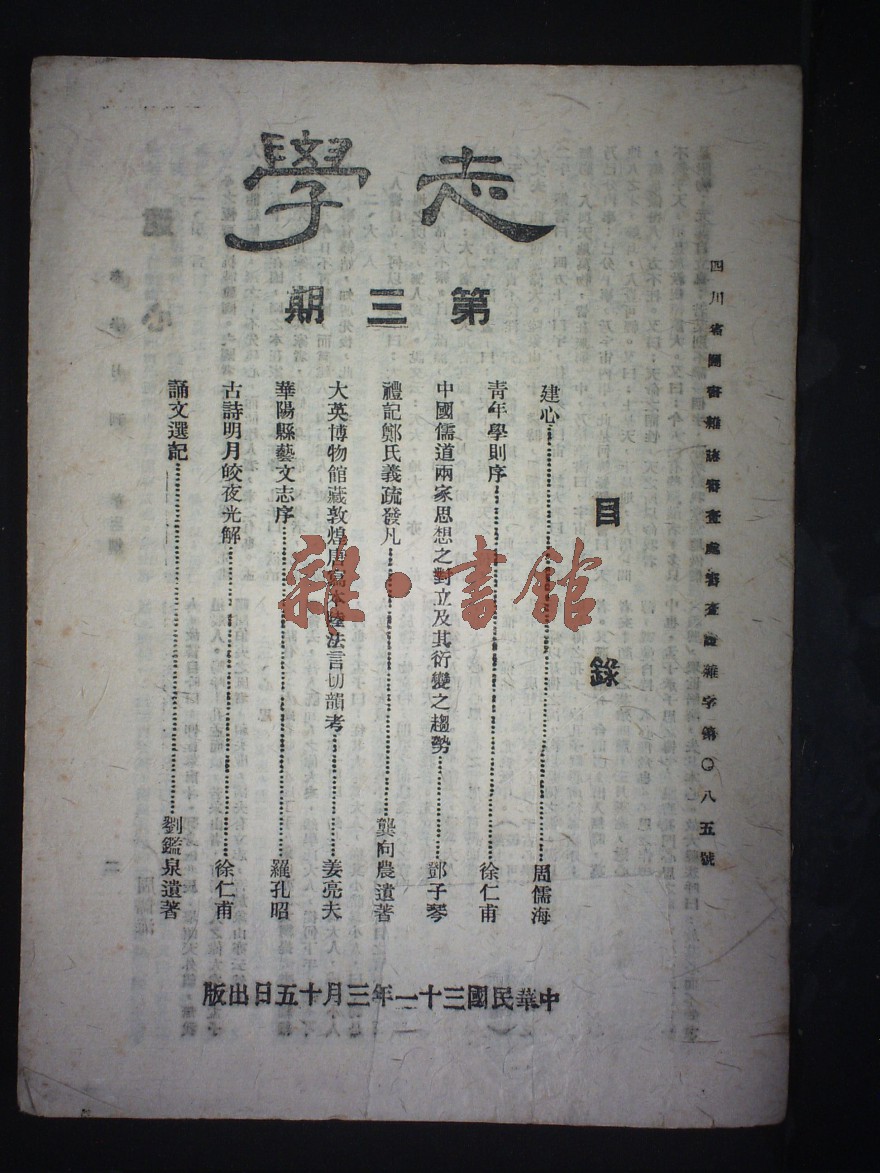 四川省圖書雜誌審查處審查證雜字第〇八五號
志學
第三期
目錄
建心 周儒海
青年學則序 徐仁甫
中國儒道兩家思想之對立及其衍變之趨勢 鄧子琴
禮記鄭氏義疏發凡 龔向農遺著
大英博物館藏敦煌唐寫本陸法言切韻考 姜亮夫
華陽縣藝文志序 羅孔昭
古詩明月皎夜光解 徐仁甫
誦文選記 劉鑑泉遺著
中華民國三十一年三月十五日出版
雜·書館